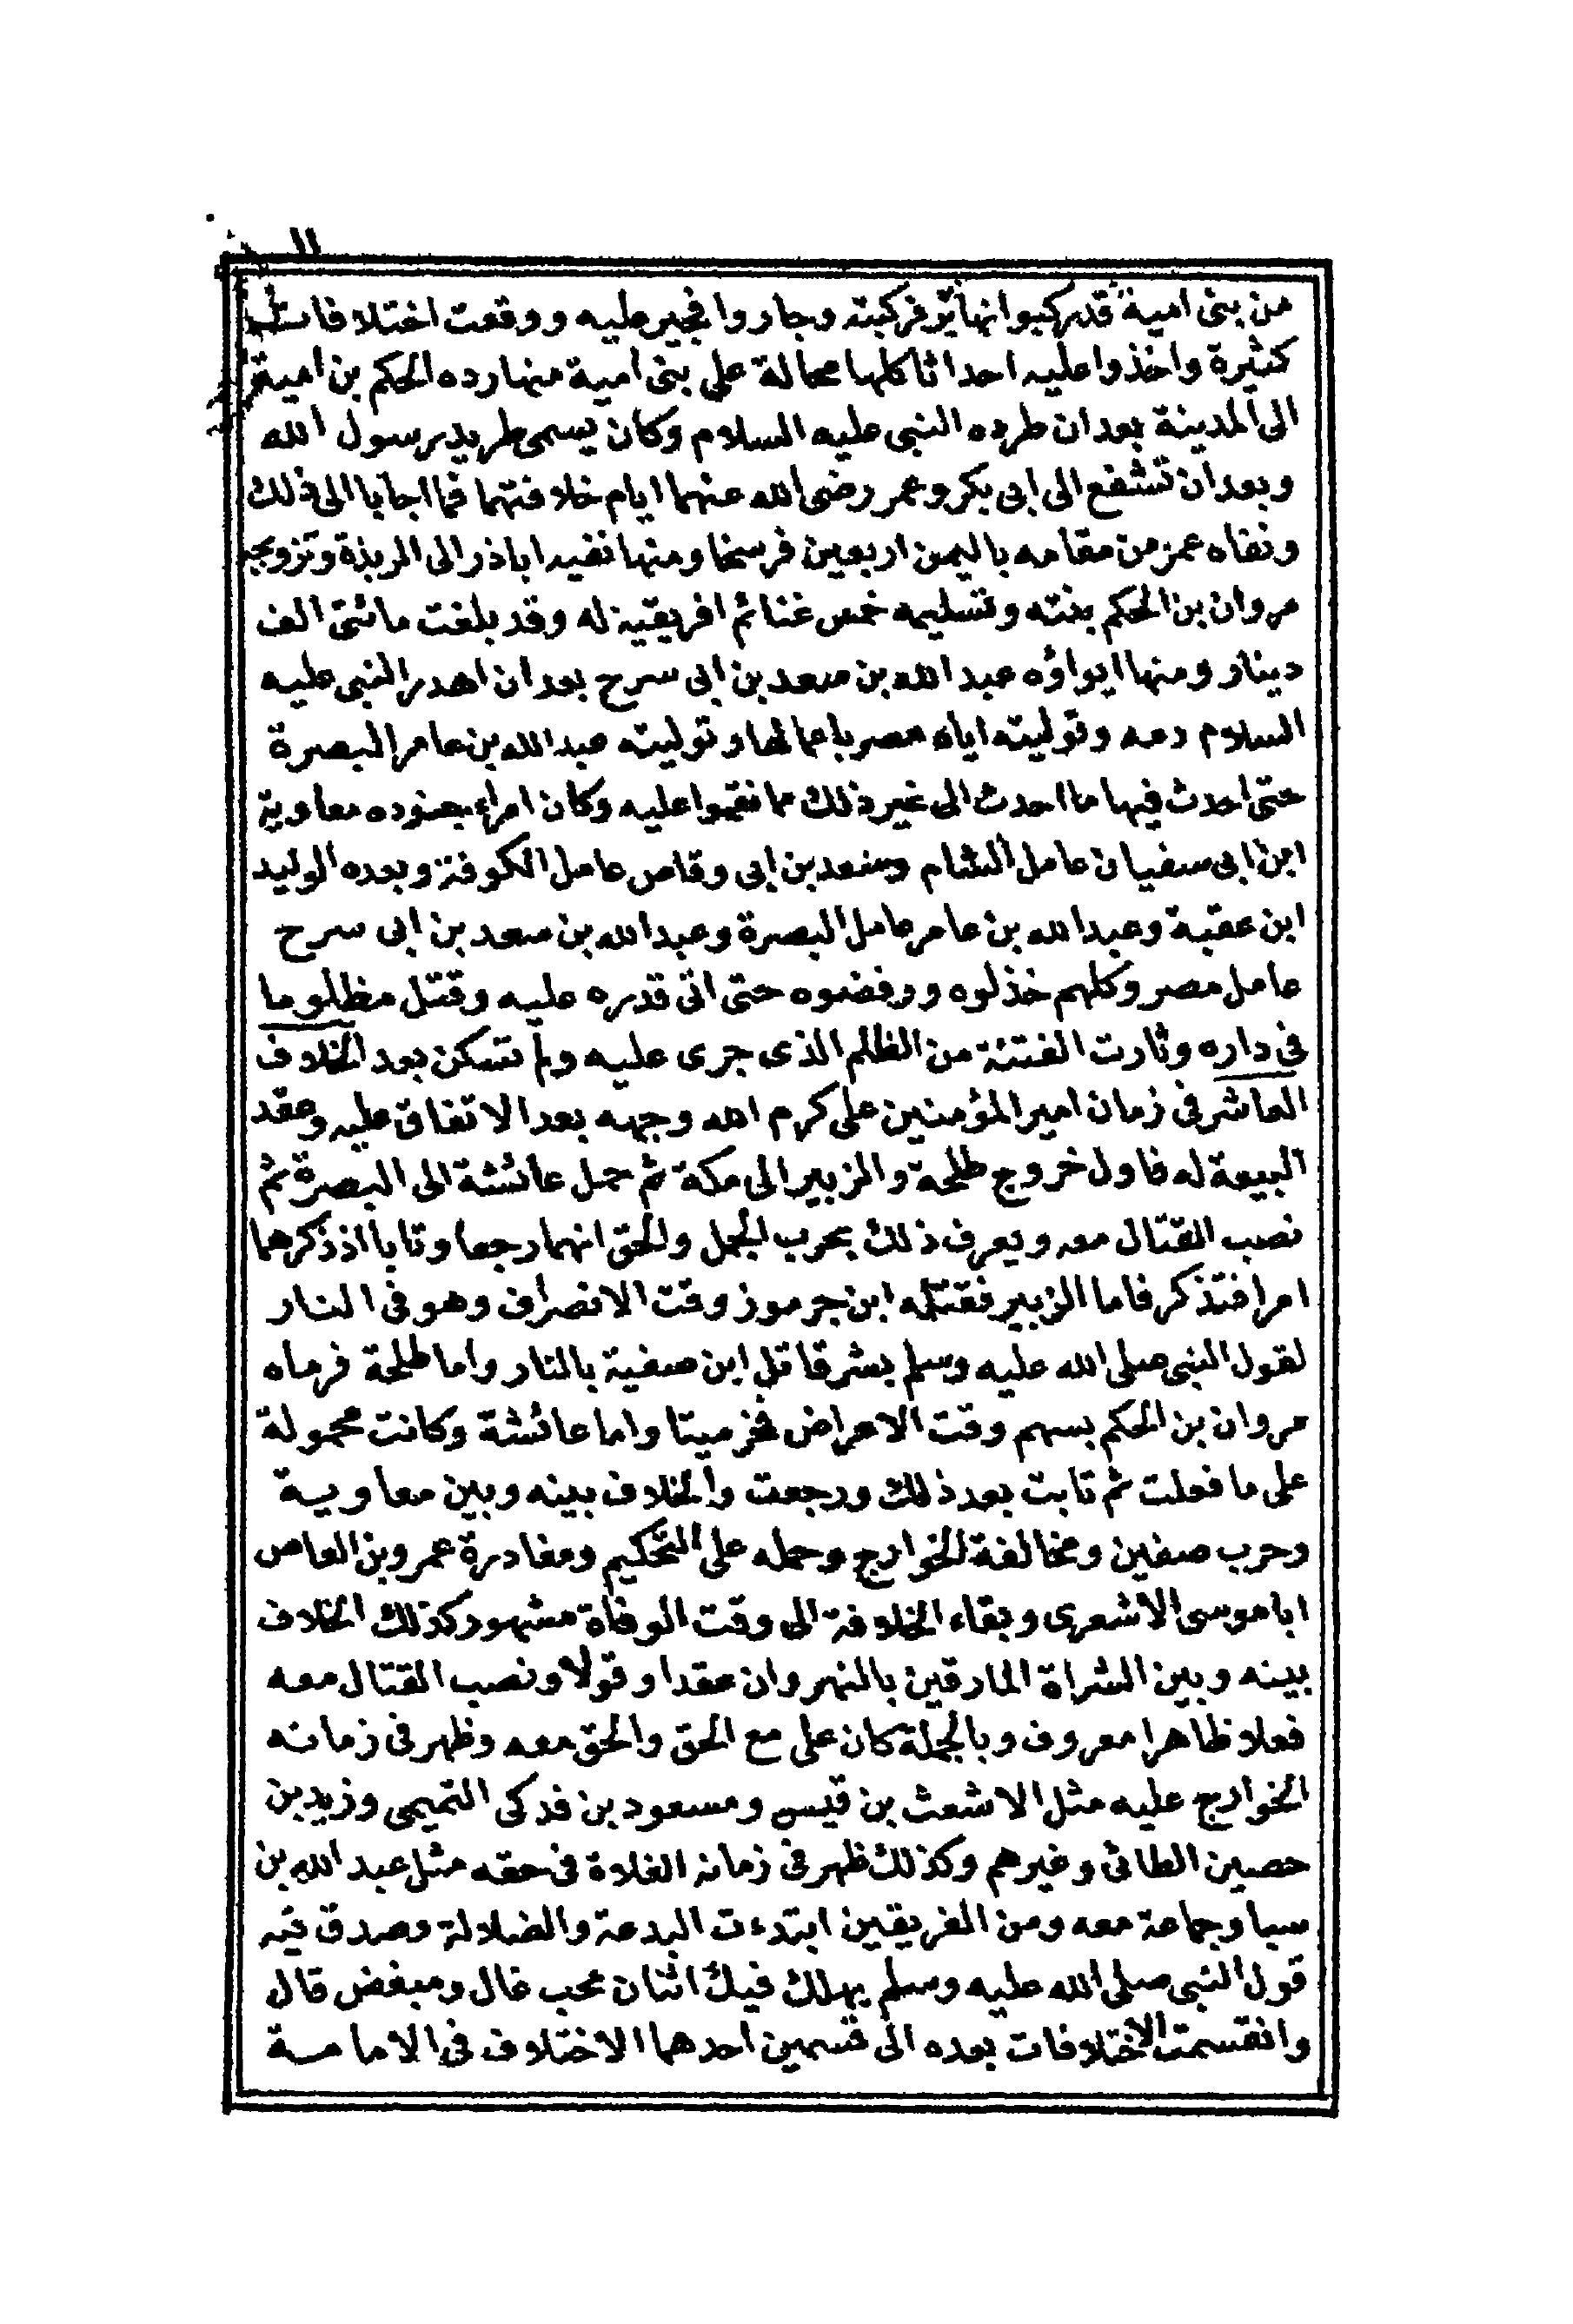 من بنى امية قد ركبوا نهابر فركبته وجاروا فجير عليه ووقعت اختلافات
كثيرة واخذوا عليه احداثا كلها محالة على بنى امية منها رده الحكم بن امية
الى المدينة بعد ان طرده النبى عليه السلام وكان يسمى طريد رسول الله
وبعد ان تشفع الى ابى بكر وعمر رضى الله عنهما ايام خلافتهما فما اجابا الى ذلك
ونفاه عمر من مقامه باليمن اربعين فرسخا ومنها نفيه اباذر الى الربذة وتزويجه
مروان بن الحكم بنته وتسليمه خمس غنائم افريقية له وقد بلغت مائتى الف
دينار ومنها ايواؤه عبد الله بن سعد بن ابى سرح بعد ان اهدر النبى عليه
السلام دمه وتوليته اياه مصر باعمالها وتوليته عبد الله بن عامر البصرة
حتى احدث فيها ما احدث الى غير ذلك مما نقموا عليه وكان امراء جنوده معاوية
ابن ابى سفيان عامل الشام وسعد بن ابى وقاص عامل الكوفة وبعده الوليد
ابن عقبة وعبد الله بن عامر عامل البصرة وعبد الله بن سعد بن ابى سرح
عامل مصر وكلهم خذلوه ورفضوه حتى اتى قدره عليه وقتل مظلوما
فى داره وثارت الفتنة من الظلم الذى جرى عليه ولم تسكن بعد الخلاف
العاشر فى زمان امير المؤمنين على كرم الله وجهه بعد الاتفاق عليه وعقد
البيعة له فاول خروج طلحة والزبير الى مكة ثم حمل عائشة الى البصرة ثم
نصب القتال معه ويعرف ذلك بحرب الجمل والحق انهما رجعا وتابا اذ ذكرهما
امرا فتذكر فاما الزبير فقتله ابن جرموز وقت الانصراف وهو فى النار
لقول النبى صلى الله عليه وسلم بشر قاتل ابن صفية بالنار واما طلحة فرماه
مروان بن الحكم بسهم وقت الاعراض فخر ميتا واما عائشة وكانت محمولة
على ما فعلت ثم تابت بعد ذلك ورجعت والخلاف بينه وبين معاوية
وحرب صفين ومخالفة الخوارج وحمله على التحكيم ومغادرة عمرو بن العاص
ابا موسى الاشعرى وبقاء الخلافة الى وقت الوفاة مشهور كذلك الخلاف
بينه وبين الشراة المارقين بالنهروان عقدا وقولا ونصب القتال معه
فعلا ظاهرا معروف وبالجملة كان على مع الحق والحق معه وظهر فى زمانه
الخوارج عليه مثل الاشعث بن قيس ومسعود بن فدكى التميمى وزيد بن
حصين الطائى وغيرهم وكذلك ظهر فى زمانه الغلاة فى حقه مثل عبد الله بن
سبا وجماعة معه ومن الفريقين ابتدءت البدعة والضلالة وصدق فيه
قول النبى صلى الله عليه وسلم يهلك فيك اثنان محب غال ومبغض قال
وانقسمت الاختلافات بعده الى قسمين احدهما الاختلاف فى الامامة